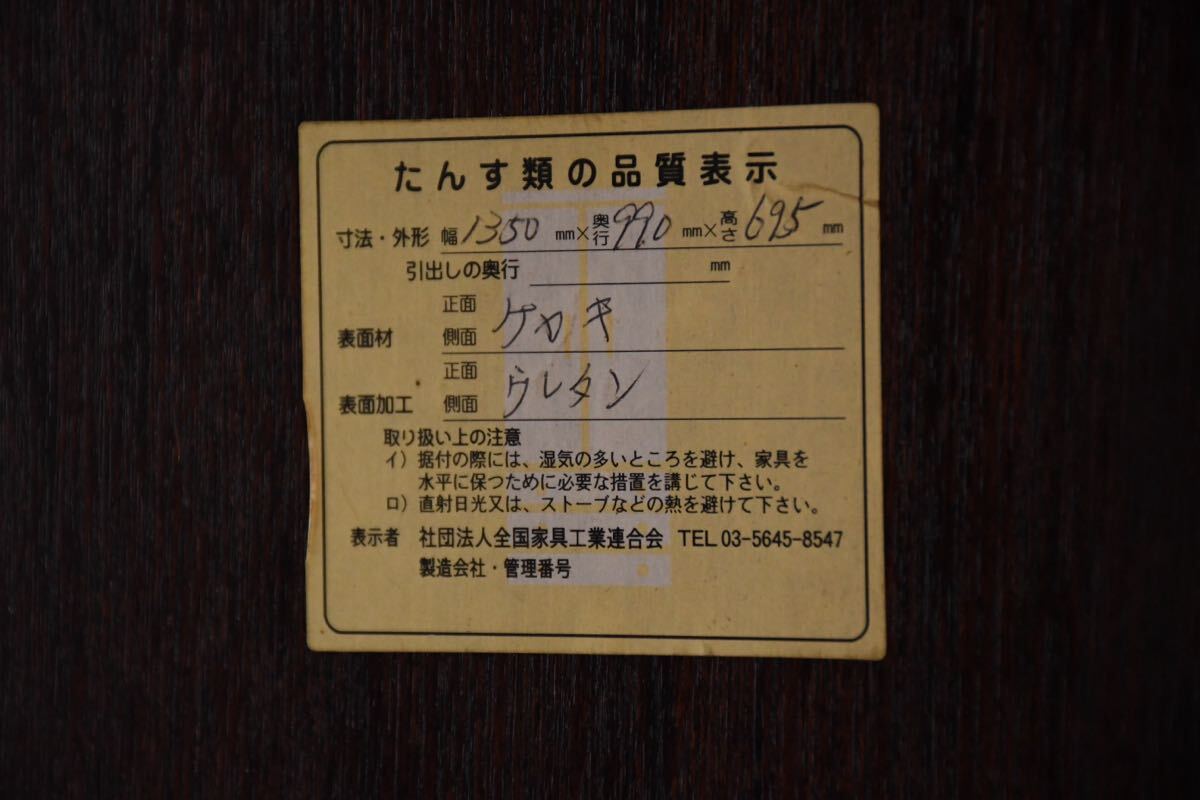 たんす類の品質表示
寸法・外形 幅 1350 mm×奥行 990 mm×高さ 695 mm
引出しの奥行 mm
正面
表面材 側面 ケヤキ
正面
表面加工 側面 ウレタン
取り扱い上の注意
イ）据付の際には、湿気の多いところを避け、家具を
水平に保つために必要な措置を講じて下さい。
ロ）直射日光又は、ストーブなどの熱を避けて下さい。
表示者 社団法人全国家具工業連合会 TEL 03-5645-8547
製造会社・管理番号